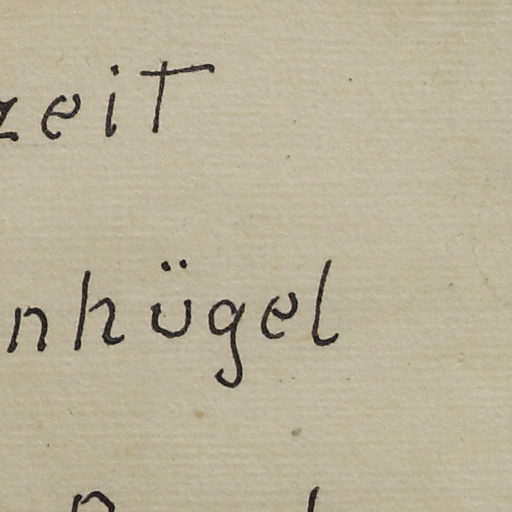 zeit
nhügel